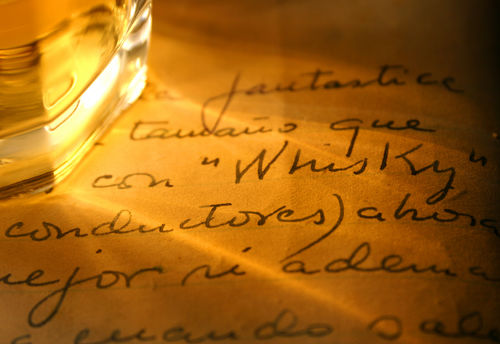 a fantastica
tamaño que
con "Whisky"
conductores) ahora
mejor si adema
cuando sal